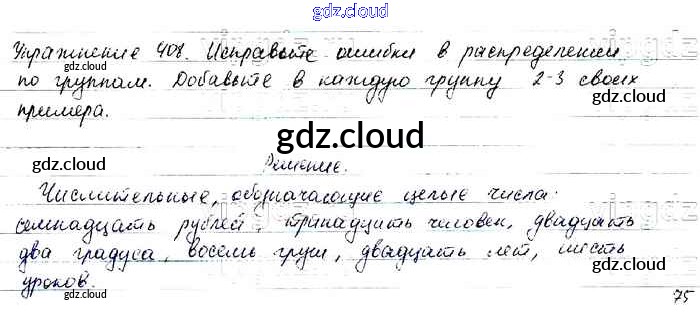 gdz.cloud
Упражнение 408. Исправьте ошибки в распределении
по группам. Добавьте в каждую группу 2-3 своих
gdz.cloud
примера.
gdz.cloud
gdz.cloud
Решение.
gdz.cloud
Числительные, обозначающие целые числа:
семнадцать рублей, тринадцать человек, двадцать
два градуса, восемь груш, двадцать лет, шесть
gdz.cloud
уроков.
gdz.cloud
gdz.cloud
75